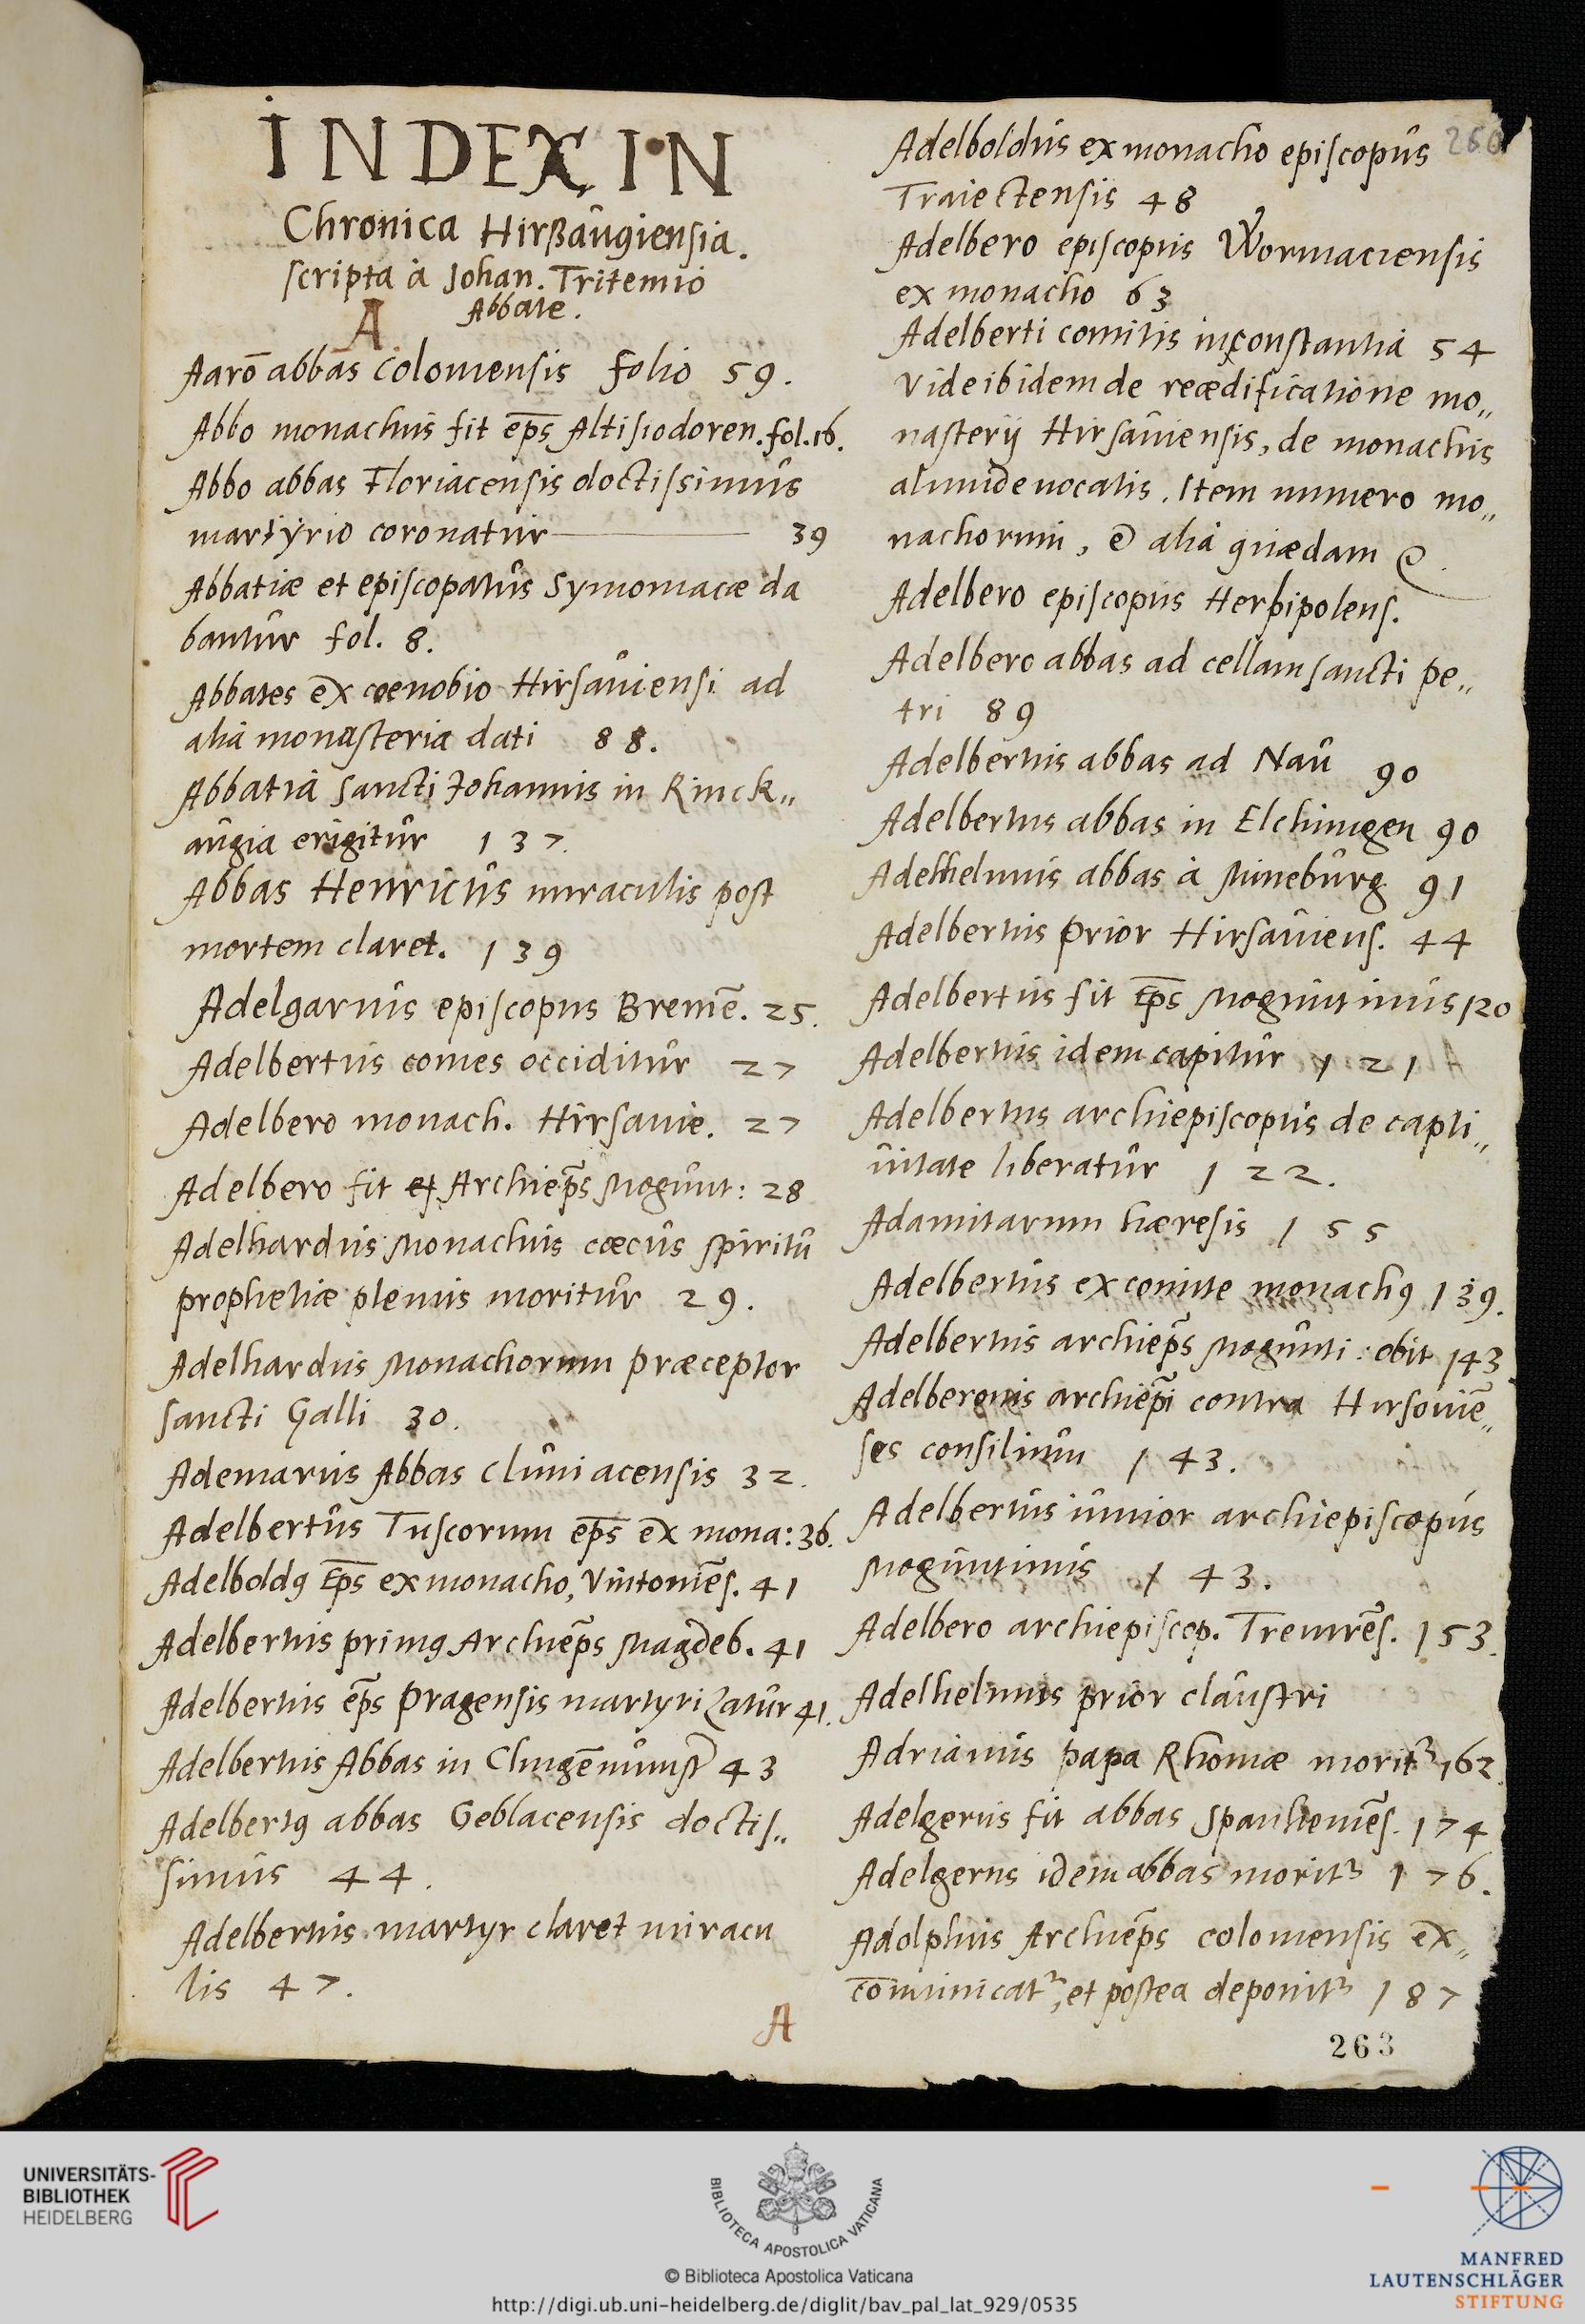 INDEX IN
Chronica Hirßaugiensia.
scripta à Johan. Tritemio
Abbate.
A
Aarō abbas Coloniensis folio 59.
Abbo monachus fit ep̄s Altisiodoren. fol. 16.
Abbo abbas Floriacensis doctissimus
martÿrio coronatur 39
Abbatiæ et episcopatus Symoniacæ da
bantur fol. 8.
Abbates ex cœnobio Hirsauiensi ad
alia monasteria dati 88.
Abbatia Sancti Johannis in Rinck„
augia erigitur 137.
Abbas Henricus miraculis post
mortem claret. 139
Adelgarius episcopus Bremē. 25.
Adelbertus comes occiditur 27
Adelbero monach. Hirsauie. 27
Adelbero fit Archiep̄s Mogunt: 28
Adelhardus Monachus cæcus spiritu
prophetiæ plenus moritur 29.
Adelhardus Monachorum præceptor
sancti Galli 30.
Ademarus Abbas Cluniacensis 32.
Adelbertus Tuscorum ep̄s ex mona: 36.
Adelboldꝰ Ep̄s ex monacho, Vintoniēs. 41
Adelbertus primꝰ Archiep̄s Magdeb. 41
Adelbertus ep̄s Pragensis martyrizatur 41.
Adelbertus Abbas in 43
Adelbertꝰ abbas Geblacensis doctis„
simus 44.
Adelbertus martyr claret miracu
lis 47.
A
Adelboldus ex monacho episcopus
Traiectensis 48
Adelbero episcopus Wormaciensis
ex monacho 63
Adelberti comitis inconstantia 54
Vide ibidem de reædificatione mo„
nasterij Hirsauiensis, de monachis
aliunde uocatis. Item numero mo„
nachorum, & alia quædam &.
Adelbero episcopus Herbipolens.
Adelbero abbas ad cellam sancti Pe„
tri 89
Adelbertus abbas ad Nau 90
Adelbertus abbas in Elchingen 90
Adelhelmus abbas à Nimeburg 91
Adelbertus Prior Hirsauiens. 44
Adelbertus fit Ep̄s Moguntinus 120
Adelbertus idem capitur 121
Adelbertus archiepiscopus de capti„
uitate liberatur 122.
Adamitarum hæresis 155
Adelbertus ex comite monachꝰ 139.
Adelbertus archiep̄s Mogunti: obit 143
Adelberonis archiep̄i contra Hirsauiē„
ses consilium 143.
Adelbertus iunior archiepiscopus
Moguntinus 143.
Adelbero archiepiscop. Treuirēs. 153.
Adelhelmus prior claustri
Adrianus papa Rhomæ moritᷣ 162.
Adelgerus fit abbas Spanhemēs. 174
Adelgerus idem abbas moritᷣ 176.
Adolphus Archiep̄s coloniensis ex„
cōmunicatᷣ, et postea deponitᷣ 187
263
UNIVERSITÄTS-
BIBLIOTHEK
HEIDELBERG
BIBLIOTECA APOSTOLICA VATICANA
© Biblioteca Apostolica Vaticana
http://digi.ub.uni-heidelberg.de/diglit/bav_pal_lat_929/0535
MANFRED
LAUTENSCHLÄGER
STIFTUNG